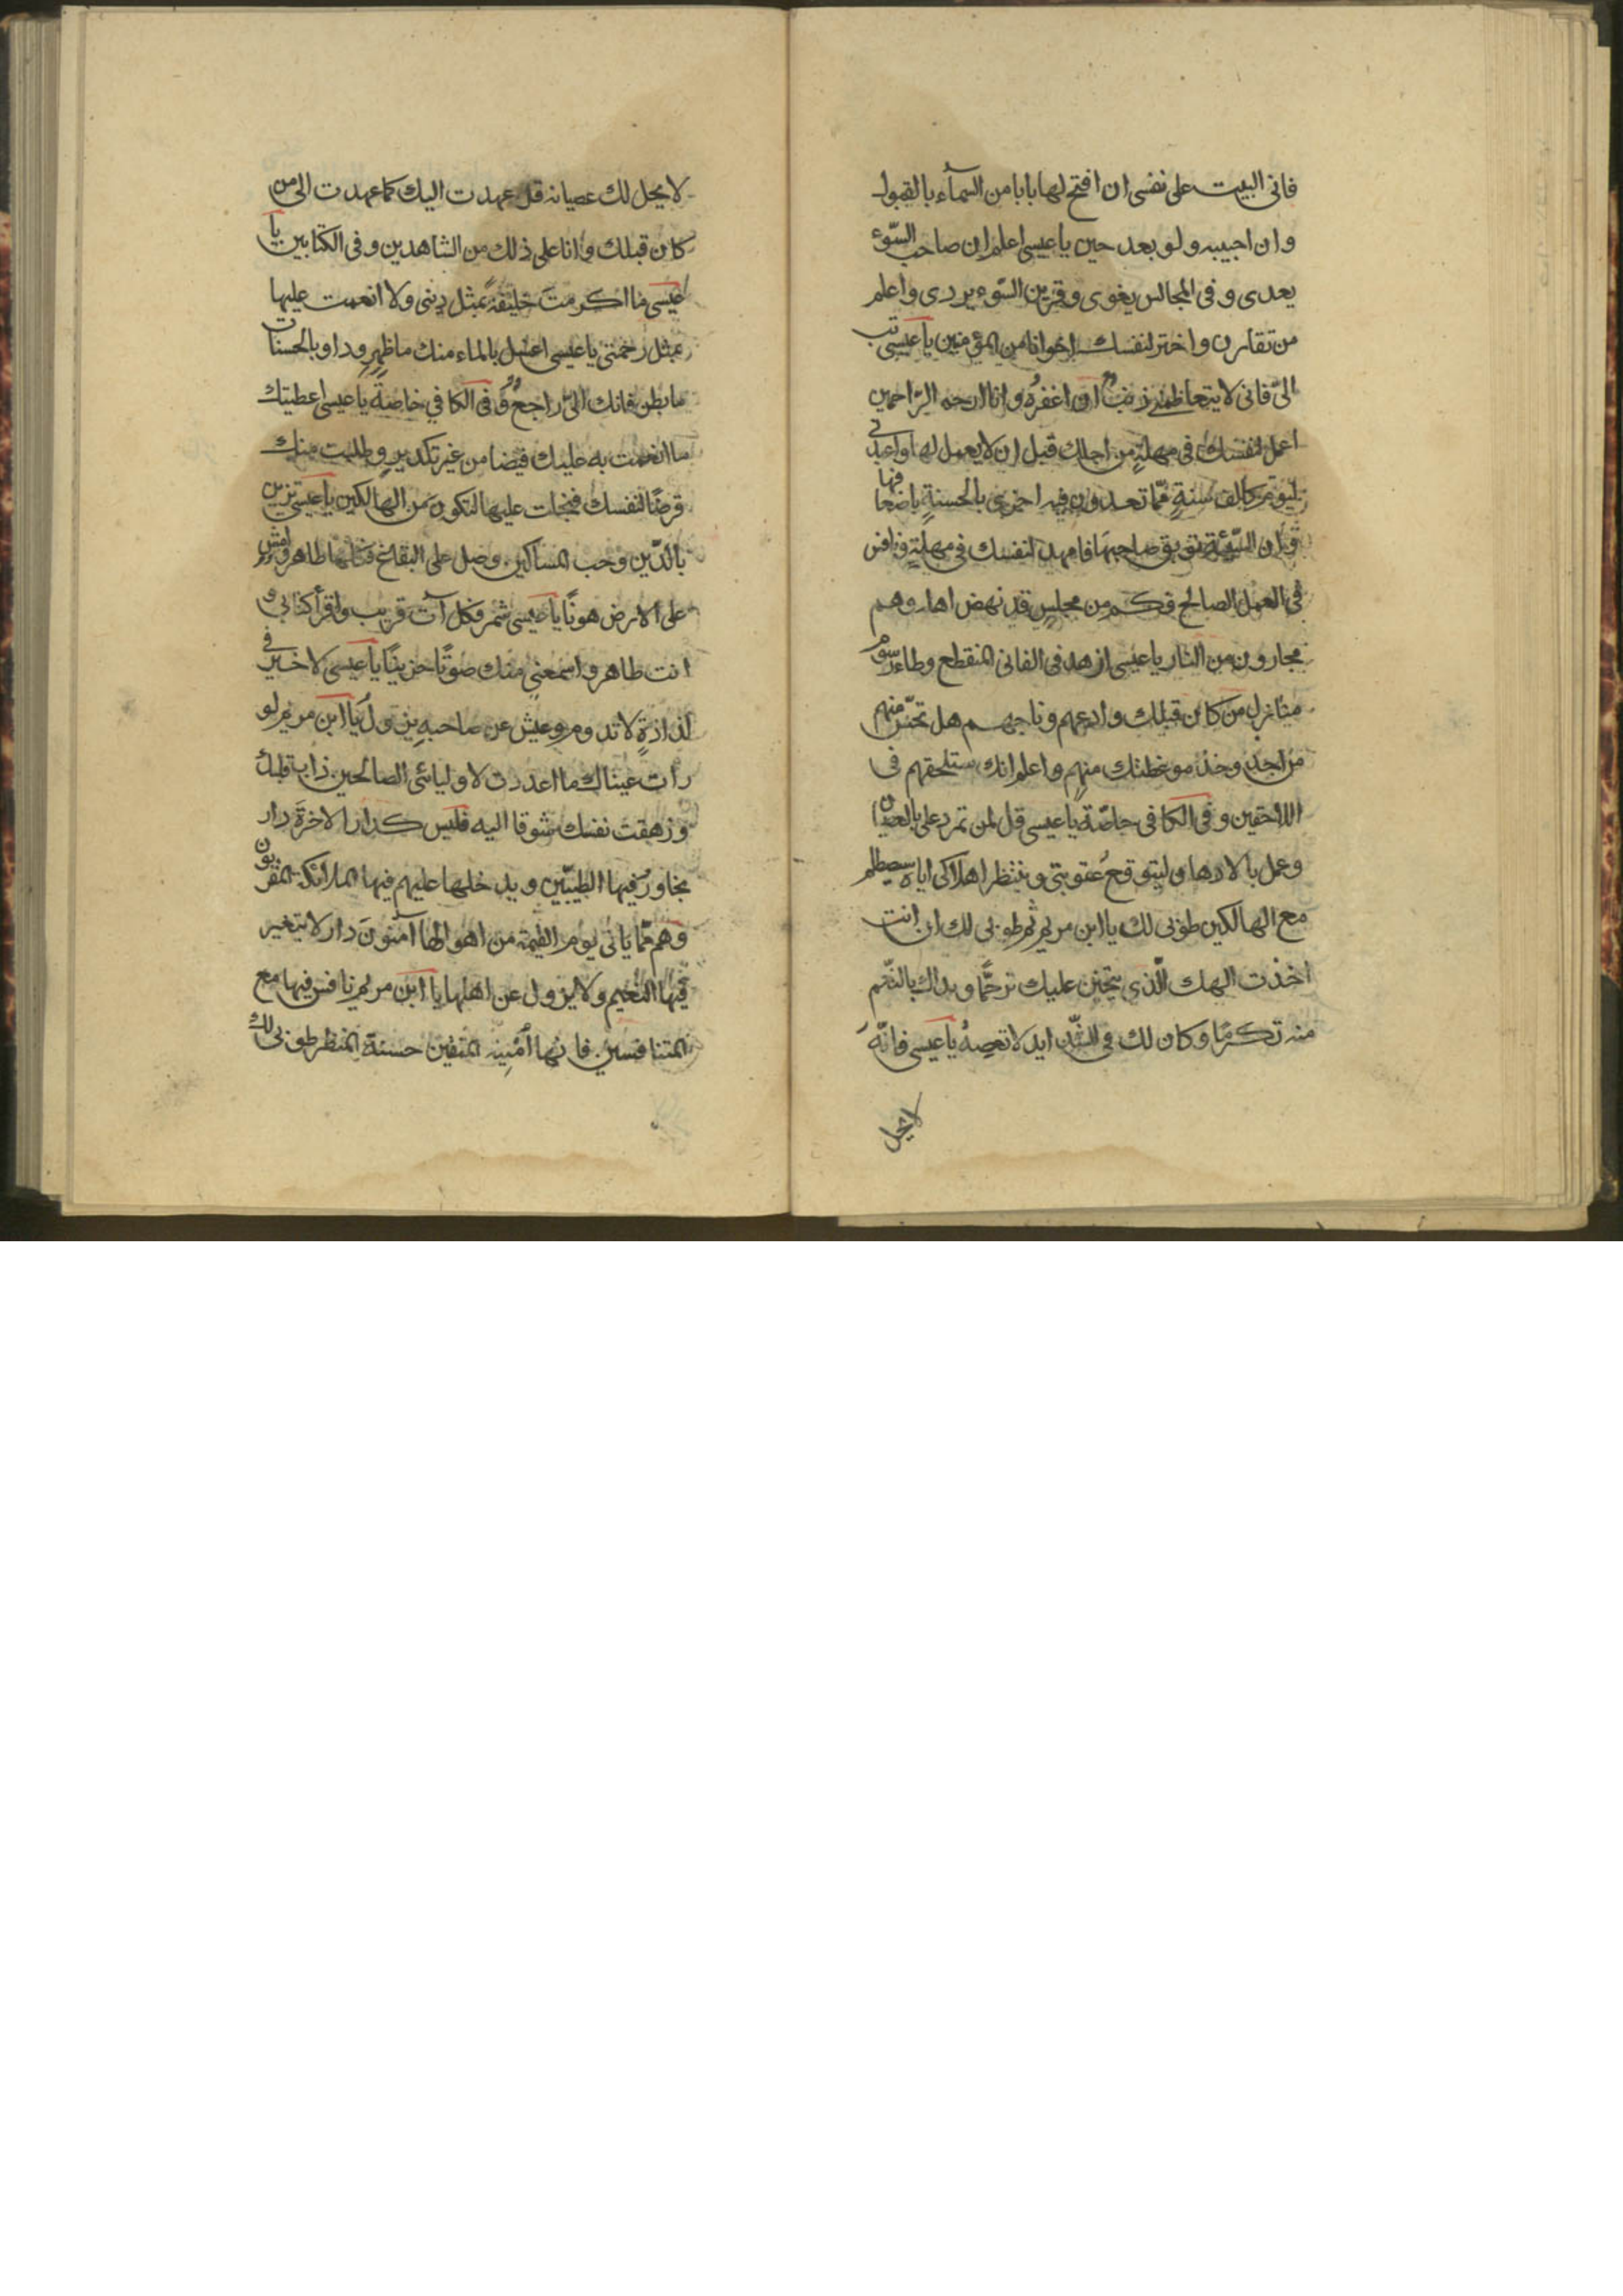 فانى اليت على نفسى ان افتح لها بابا من السمآء بالقبول
وان اجيبه ولو بعد حين يا عيسى اعلم ان صاحب السّوء
يعدى وفى المجالس يغوى وقرين السّوء يردى واعلم
من تقارن واختر لنفسك اخوانا من المؤمنين يا عيسى تب
الىّ فانى لا يتعاظمنى ذنب ان اغفرُه وانا ارحم الرّاحمين
اعمل لنفسك فى مهلةٍ من اجلك قبل ان لا يعمل لها واعبدنى
ليوم كالف سنةٍ ممّا تعدون فيه اجزى بالحسنةٍ اضعافها
وان السّيئة توبق صاحبها فامهد لنفسك فى مهلةٍ ونافس
فى العمل الصالح فكم من مجلسٍ قد نهض اهله وهم
مجارون من النار يا عيسى ازهد فى الفانى المنقطع وطاء رسوم
منازل من كان قبلك وادعهم وناجهم هل تحسّ منهم
من احد وخذ موعظتك منهم واعلم انك ستلحقهم فى
اللاحقين وفى الكافى خاصّة يا عيسى قل لمن تمرد على بالعصيان
وعمل بالادهان ليتوقعُ عقوبتى وينتظر اهلاكى اياه سيصطلم
مع الهالكين طوبى لك يا ابن مريم ثم طوبى لك ان انت
اخذت الهك الّذى يتحنن عليك ترحّما وبداك بالنّعم
منه تكرمًا وكان لك فى الشّدايد لا تعصِهُ يا عيسى فانّهَ
لا يحل
لا يحل لك عصيانه قد عهدت اليك كما عهدت الى من
كان قبلك وانا على ذلك من الشاهدين وفى الكتابين يا
عيسى ما اكرمت خليقة بمثل دينى ولا انعمت عليها
بمثل رحمتى يا عيسى اغسل بالماء منك ما ظهر وداو بالحسنات
ما بطن فانك الىّ راجعٌ وفى الكافي خاصة يا عيسى اعطيتك
ما انعمت به عليك فيضا من غير تكدير وطلبت منك
قرضًا لنفسك فبخلت عليها لتكون من الهالكين يا عيسى تزين
بالدّين وحب المساكين وصل على البقاع فكلها طاهر وامش
على الارض هونًا يا عيسى شمر فكل آت قريب واقرأ كتابى و
انت طاهر واسمعنى منك صوتًا حزينًا يا عيسى لا خير فى
لذاذةٍ لا تدوم وعيش عن صاحبهِ يزولُ يا ابن مريم لو
رات عيناك ما اعددت لاوليائى الصالحين ذاب قلبك
وزهقت نفسك شوقا اليه فليس كدار الاخرة دار
تجاور فيها الطيّبين ويدخلها عليهم فيها الملائكة المقربون
وهم ممّا ياتى يوم القيمة من اهوالها آمنون دار لا يتغير
فيها النعيم ولا يزول عن اهلها يا ابن مريم نافس فيها مع
المتنافسين فانها أُمنِيّه المتمنين حسنة المنظر طوبى لك